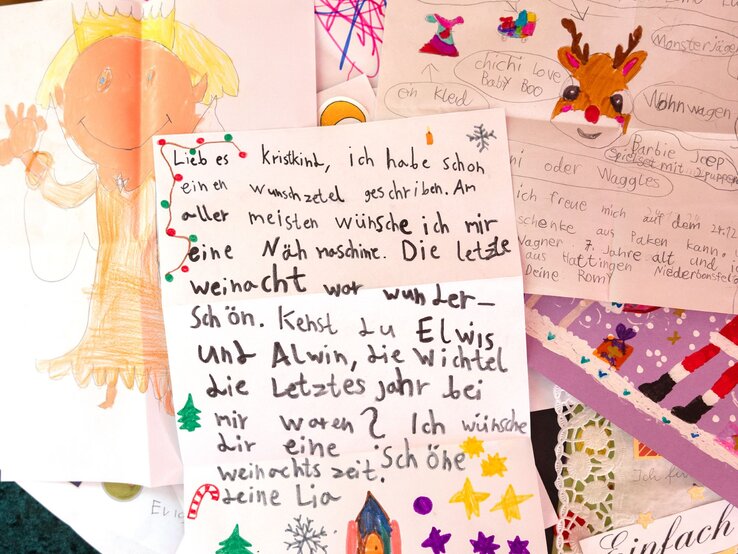 Lieb es Kristkint, ich habe schon
einen wunschzetel geschriben. Am
aller meisten wünsche ich mir
eine Näh maschine. Die letzte
weinacht war wunder-
schön. Kenst du Elwis
und Alwin, die Wichtel
die Letztes jahr bei
mir waren? Ich wünsche
dir eine schöne
weinachts zeit.
deine Lia
chichi Love
Baby Boo
ein Kleid
Monsterjäge
Wohnwagen
Barbie Jeep
Spielset mit 2 puppen
ni oder Waggles
ich freue mich auf dem 24.12
schenke aus Paken kann.
Wagner. 7 Jahre alt und
aus Hattingen Niederbonsfeld
Deine Romy
Ich
Einfach